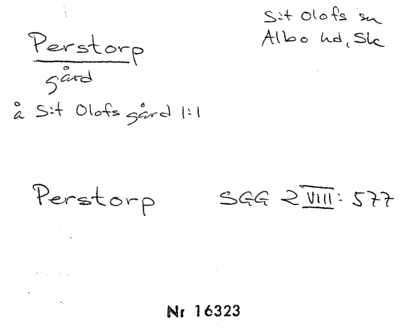 S:t Olofs sn
Albo hd, Sk
Perstorp
gård
å S:t Olofs gård 1:1
Perstorp SGG 2 VIII: 577
Nr 16323